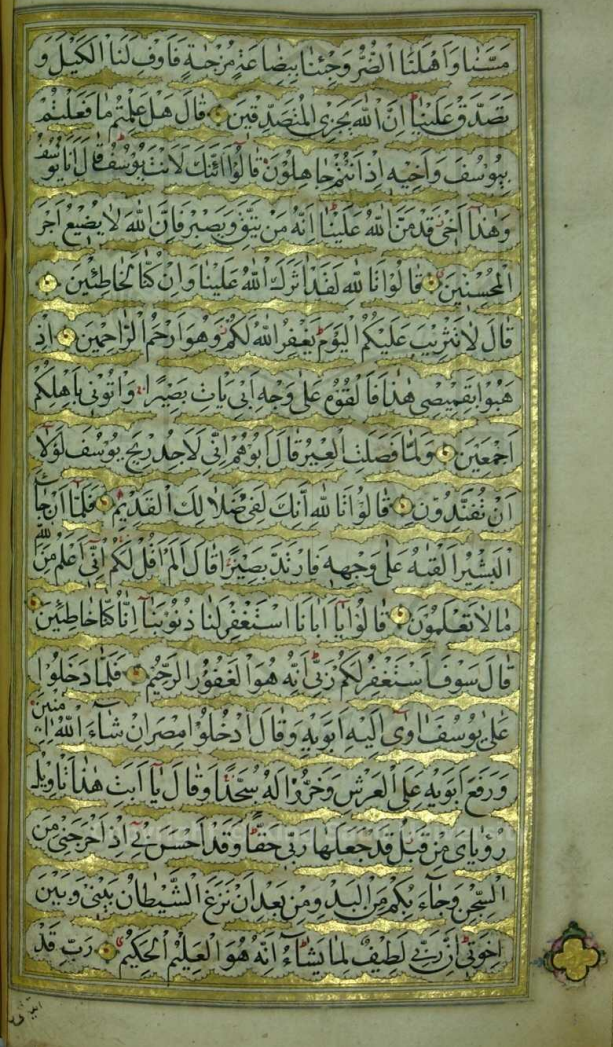 مَسَّنَا وَاَهْلَنَا الضُّرُّ وَجِئْنَا بِبِضَاعَةٍ مُزْجٰيةٍ فَاَوْفِ لَنَا الْكَيْلَ وَ
تَصَدَّقْ عَلَيْنَا اِنَّ اللّٰهَ يَجْزِى الْمُتَصَدِّقِينَ قَالَ هَلْ عَلِمْتُمْ مَا فَعَلْتُمْ
بِيُوسُفَ وَاَخِيهِ اِذْ اَنْتُمْ جَاهِلُونَ قَالُوا اَئِنَّكَ لَاَنْتَ يُوسُفُ قَالَ اَنَا يُوسُفُ
وَهٰذَا اَخِى قَدْ مَنَّ اللّٰهُ عَلَيْنَا اِنَّهُ مَنْ يَتَّقِ وَيَصْبِرْ فَاِنَّ اللّٰهَ لَا يُضِيعُ اَجْرَ
الْمُحْسِنِينَ قَالُوا تَا للّٰهِ لَقَدْ اٰثَرَكَ اللّٰهُ عَلَيْنَا وَاِنْ كُنَّا لَخَاطِئِينَ
قَالَ لَا تَثْرِيبَ عَلَيْكُمُ الْيَوْمَ يَغْفِرُ اللّٰهُ لَكُمْ وَهُوَ اَرْحَمُ الرَّاحِمِينَ اِذْ
هَبُوا بِقَمِيصِى هٰذَا فَاَلْقُوهُ عَلٰى وَجْهِ اَبِى يَاْتِ بَصِيرًا وَاْتُونِى بِاَهْلِكُمْ
اَجْمَعِينَ وَلَمَّا فَصَلَتِ الْعِيرُ قَالَ اَبُوهُمْ اِنِّى لَاَجِدُ رِيحَ يُوسُفَ لَوْلَا
اَنْ تُفَنِّدُونِ قَالُوا تَا للّٰهِ اِنَّكَ لَفِى ضَلَالِكَ الْقَدِيمِ فَلَمَّا اَنْ جَاءَ
الْبَشِيرُ اَلْقٰيهُ عَلٰى وَجْهِهِ فَارْتَدَّ بَصِيرًا قَالَ اَلَمْ اَقُلْ لَكُمْ اِنِّى اَعْلَمُ مِنَ اللّٰهِ
مَا لَا تَعْلَمُونَ قَالُوا يَا اَبَانَا اسْتَغْفِرْ لَنَا ذُنُوبَنَا اِنَّا كُنَّا خَاطِئِينَ
قَالَ سَوْفَ اَسْتَغْفِرُ لَكُمْ رَبِّى اِنَّهُ هُوَ الْغَفُورُ الرَّحِيمُ فَلَمَّا دَخَلُوا
عَلٰى يُوسُفَ اٰوٰى اِلَيْهِ اَبَوَيْهِ وَقَالَ ادْخُلُوا مِصْرَ اِنْ شَاءَ اللّٰهُ اٰمِنِينَ
وَرَفَعَ اَبَوَيْهِ عَلَى الْعَرْشِ وَخَرُّوا لَهُ سُجَّدًا وَقَالَ يَا اَبَتِ هٰذَا تَاْوِيلُ
رُؤْيَاىَ مِنْ قَبْلُ قَدْ جَعَلَهَا رَبِّى حَقًّا وَقَدْ اَحْسَنَ بِى اِذْ اَخْرَجَنِى مِنَ
السِّجْنِ وَجَاءَ بِكُمْ مِنَ الْبَدْوِ مِنْ بَعْدِ اَنْ نَزَغَ الشَّيْطَانُ بَيْنِى وَبَيْنَ
اِخْوَتِى اِنَّ رَبِّى لَطِيفٌ لِمَا يَشَاءُ اِنَّهُ هُوَ الْعَلِيمُ الْحَكِيمُ رَبِّ قَدْ